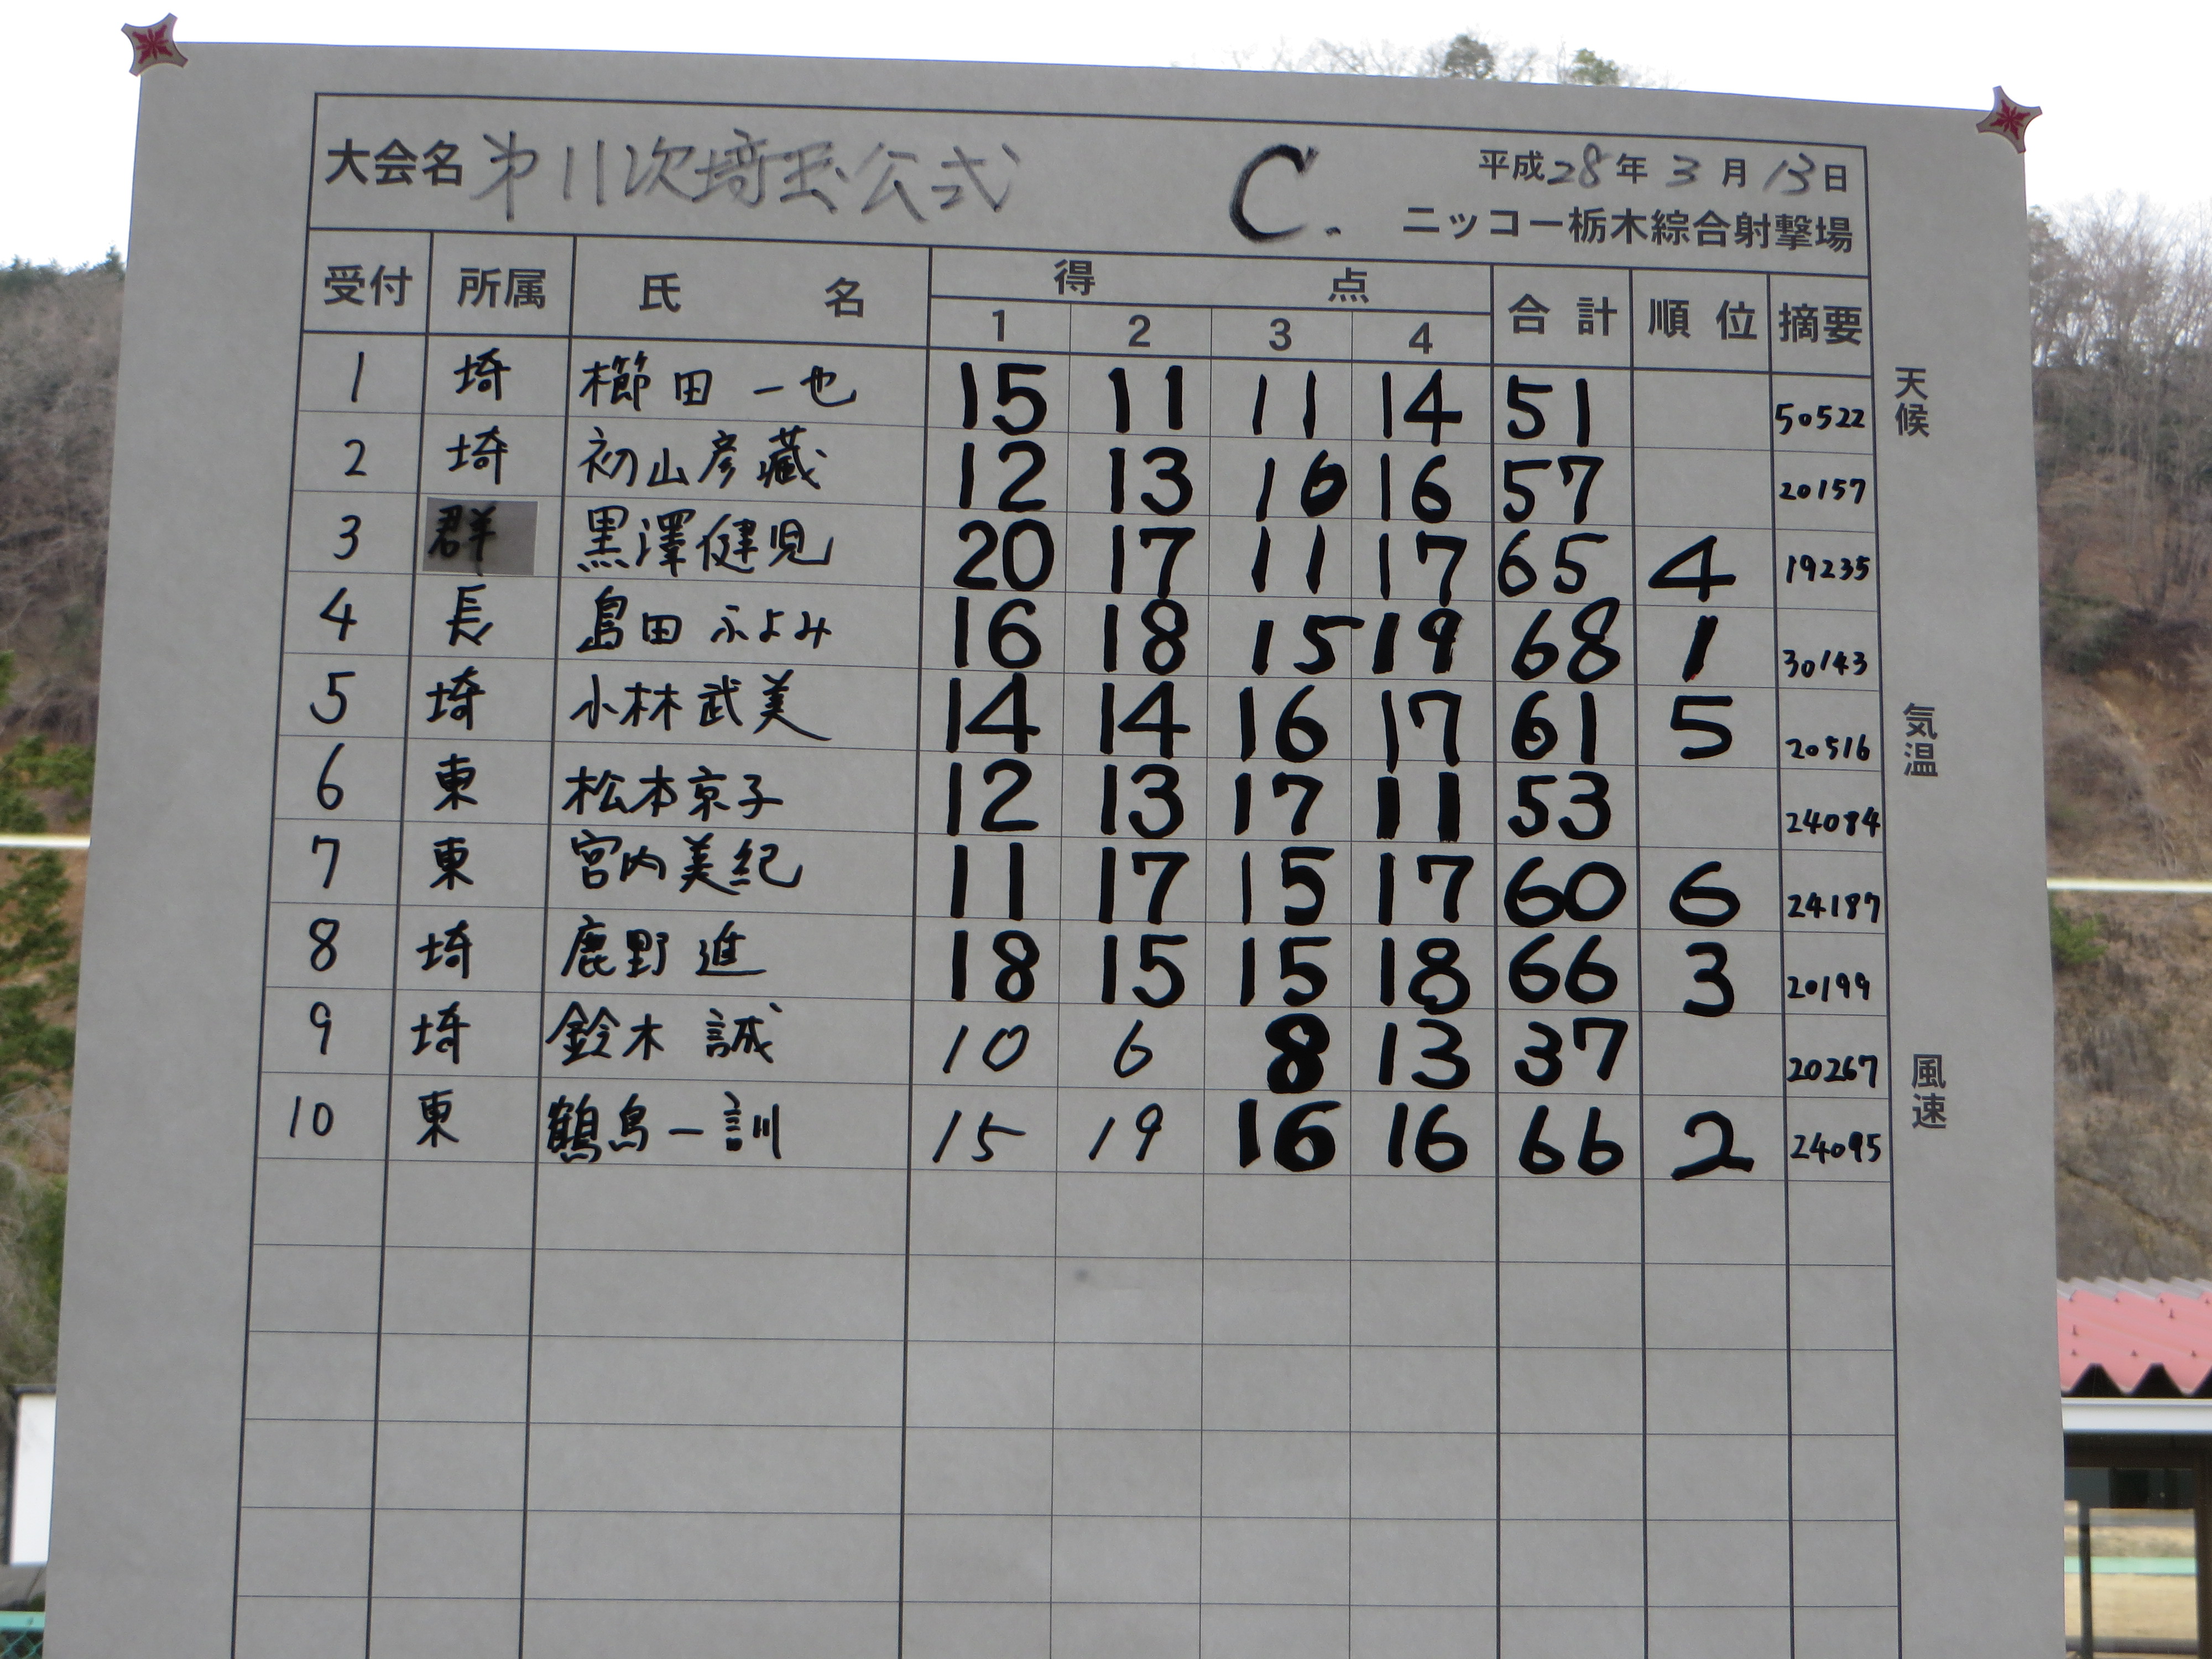 大会名 第11次埼玉公式 C. 平成28年3月13日
ニッコー栃木綜合射撃場
受付 所属 氏名 得点 合計 順位 摘要
1 2 3 4
1 埼 櫛田一也 15 11 11 14 51 50522
2 埼 初山彦藏 12 13 16 16 57 20157
3 群 黒澤健児 20 17 11 17 65 4 19235
4 長 島田ふよみ 16 18 15 19 68 1 30143
5 埼 小林武美 14 14 16 17 61 5 20516
6 東 松本京子 12 13 17 11 53 24084
7 東 宮内美紀 11 17 15 17 60 6 24187
8 埼 鹿野進 18 15 15 18 66 3 20199
9 埼 鈴木誠 10 6 8 13 37 20267
10 東 鶴島一訓 15 19 16 16 66 2 24095
天候
気温
風速